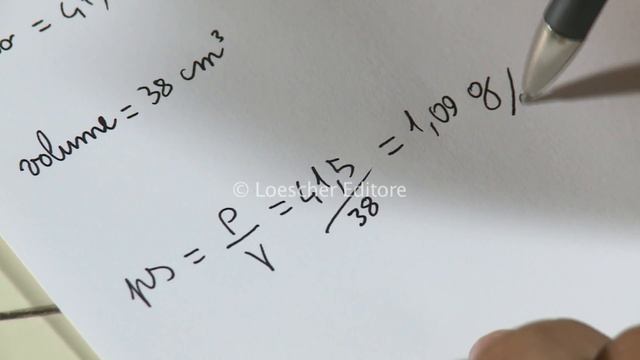 volume = 38 cm³
ps = P/V = 41,5/38 = 1,09 g/
© Loescher Editore